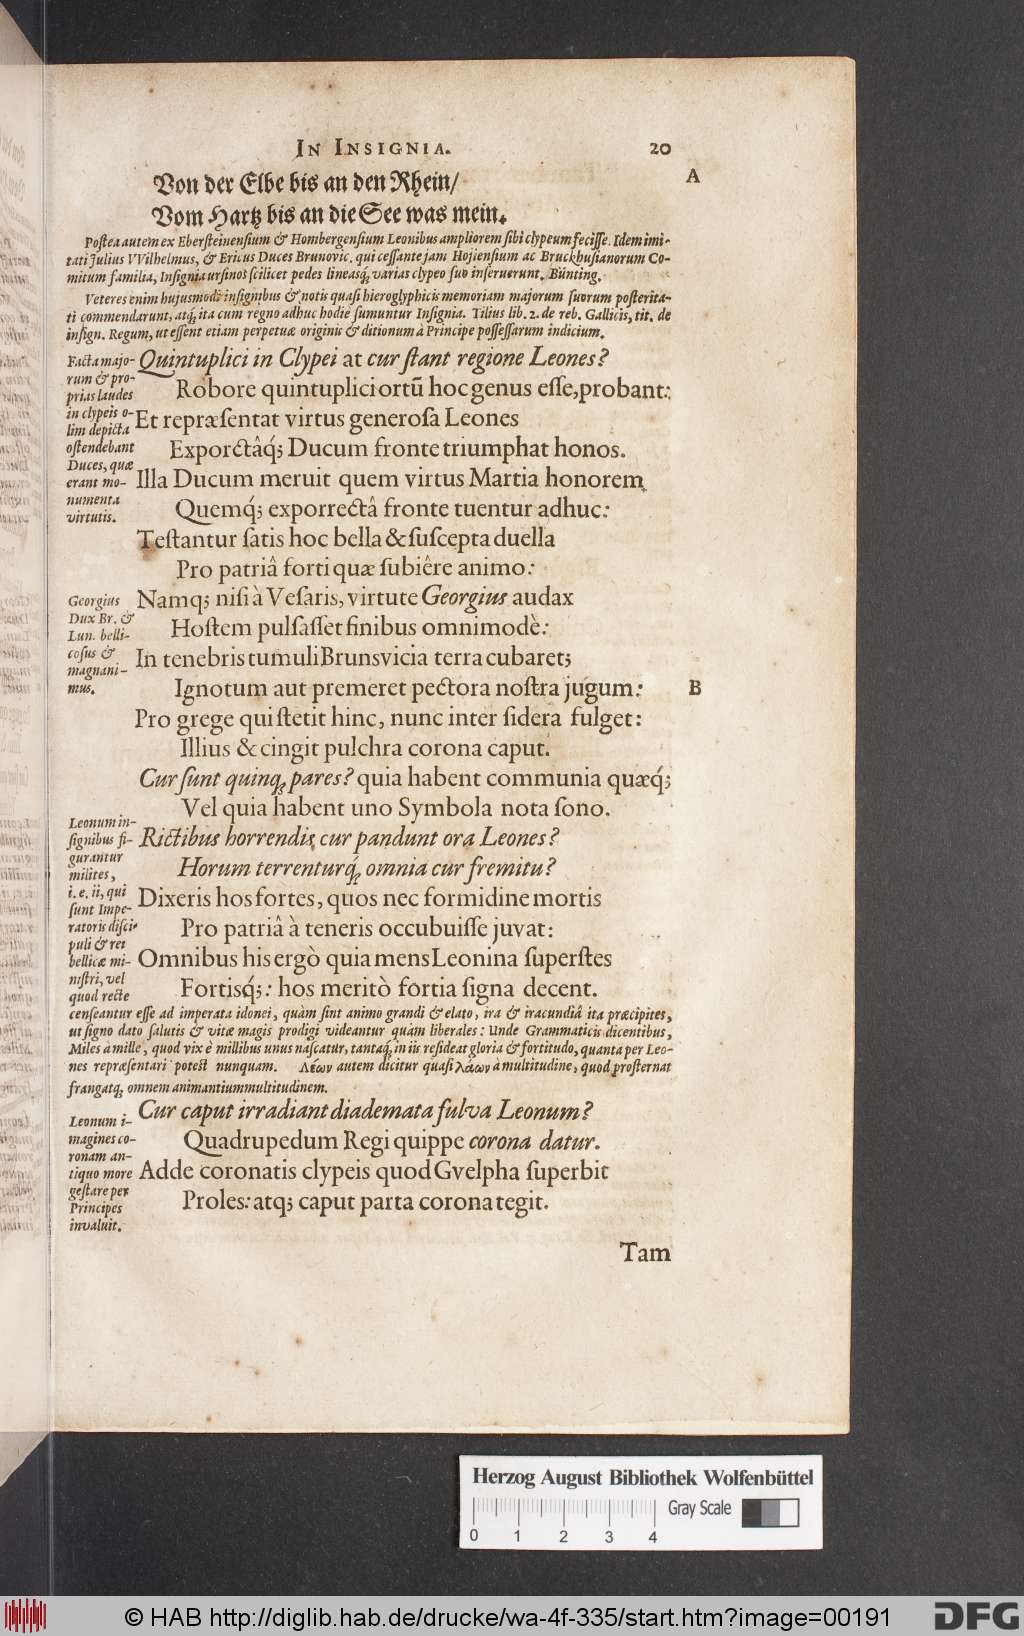 IN INSIGNIA. 20
A
Von der Elbe bis an den Rhein/
Vom Hartz bis an die See was mein.
Postea autem ex Ebersteinensium & Hombergensium Leonibus ampliorem sibi clypeum fecisse. Idem imi-
tati Julius VVilhelmus, & Ericus Duces Brunovic. qui cessante jam Hojiensium ac Bruckhusianorum Co-
mitum familia, Insignia ursinos scilicet pedes lineasq́, varias clypeo suo inseruerunt. Bünting.
Veteres enim hujusmodi insignibus & notis quasi hieroglyphicis memoriam majorum suorum posterita-
ti commendarunt, atq́, ita cum regno adhuc hodie sumuntur Insignia. Tilius lib. 2. de reb. Gallicis, tit. de
insign. Regum, ut essent etiam perpetuæ originis & ditionum à Principe possessarum indicium.
Facta majo-
rum & pro-
prias laudes
in clypeis o-
lim depicta
ostendebant
Duces, quæ
erant mo-
numenta
virtutis.
Quintuplici in Clypei at cur stant regione Leones?
Robore quintuplici ortũ hoc genus esse, probant:
Et repræsentat virtus generosa Leones
Exporctâq́; Ducum fronte triumphat honos.
Illa Ducum meruit quem virtus Martia honorem,
Quemq́; exporrectâ fronte tuentur adhuc:
Testantur satis hoc bella & suscepta duella
Pro patriâ forti quæ subiêre animo:
Georgius
Dux Br. &
Lun. belli-
cosus &
magnani-
mus.
Namq; nisi à Vesaris, virtute Georgius audax
Hostem pulsasset finibus omnimodè:
In tenebris tumuli Brunsvicia terra cubaret;
Ignotum aut premeret pectora nostra jugum:
B
Pro grege qui stetit hinc, nunc inter sidera fulget:
Illius & cingit pulchra corona caput.
Cur sunt quinq, pares? quia habent communia quæq́;
Vel quia habent uno Symbola nota sono.
Leonum in-
signibus fi-
gurantur
milites,
i. e. ii, qui
sunt Impe-
ratoris disci-
puli & rei
bellicæ mi-
nistri, vel
quod recte
Rictibus horrendis cur pandunt ora Leones?
Horum terrenturq́, omnia cur fremitu?
Dixeris hos fortes, quos nec formidine mortis
Pro patriâ à teneris occubuisse juvat:
Omnibus his ergò quia mens Leonina superstes
Fortisq́;: hos meritò fortia signa decent.
censeantur esse ad imperata idonei, quàm sint animo grandi & elato, ira & iracundiâ ita præcipites,
ut signo dato salutis & vitæ magis prodigi videantur quàm liberales: Unde Grammaticis dicentibus,
Miles à mille, quod vix è millibus unus nascatur, tantaq́, in iis resideat gloria & fortitudo, quanta per Leo-
nes repræsentari potest nunquam. Λέων autem dicitur quasi λάων à multitudine, quod prosternat
frangatq́, omnem animantium multitudinem.
Leonum i-
magines co-
ronam an-
tiquo more
gestare per
Principes
invaluit.
Cur caput irradiant diademata fulva Leonum?
Quadrupedum Regi quippe corona datur.
Adde coronatis clypeis quod Gvelpha superbit
Proles: atq; caput parta corona tegit.
Tam
Herzog August Bibliothek Wolfenbüttel
Gray Scale
0 1 2 3 4
© HAB http://diglib.hab.de/drucke/wa-4f-335/start.htm?image=00191
DFG